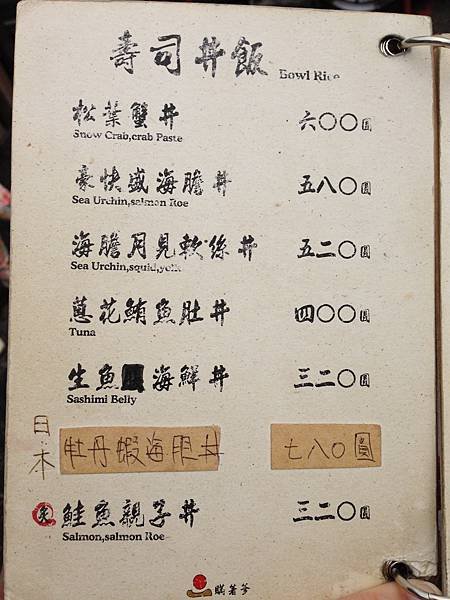 壽司丼飯 Bowl Rice
松葉蟹丼 六〇〇圓
Snow Crab,crab Paste
豪快盛海膽丼 五八〇圓
Sea Urchin,salmon Roe
海膽月見軟絲丼 五二〇圓
Sea Urchin,squid,yolk
蔥花鮪魚肚丼 四〇〇圓
Tuna
生魚海鮮丼 三二〇圓
Sashimi Belly
日本 牡丹蝦海胆丼 七八〇圓
炙 鮭魚親子丼 三二〇圓
Salmon,salmon Roe
瞞著爹